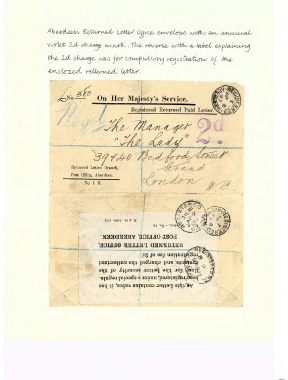 Aberdeen Returned Letter Office envelope with an unusual
violet 2d charge mark. The reverse with a label explaining
the 2d charge was for compulsory registration of the
enclosed returned letter.
No 380
On Her Majesty's Service.
Registered Returned Paid Letter
The Manager
2d.
"The Lady"
39 & 40 Bedford Street
Strand
London
Returned Letter Branch,
Post Office, Aberdeen.
No. 1 R.
As this Letter contains value, it has
been registered, under a special regula-
tion, for the better security of the
contents, and charged the authorised
registration fee of 2d
RETURNED LETTER OFFICE,
POST OFFICE, ABERDEEN